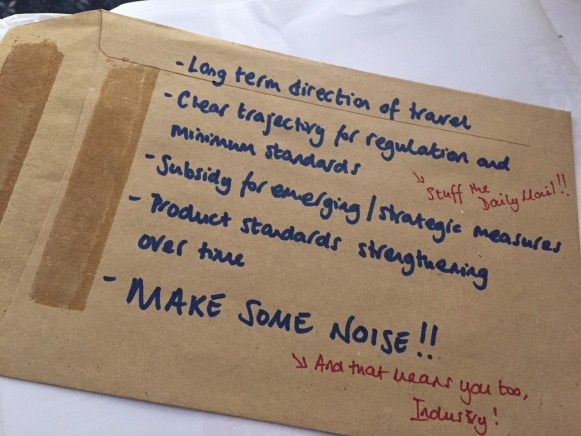 - Long term direction of travel
- Clear trajectory for regulation and
minimum standards
↳ Stuff the
Daily Mail!!
- Subsidy for emerging / strategic measures
- Product standards strengthening
over time
- MAKE SOME NOISE!!
↳ And that means you too,
Industry!